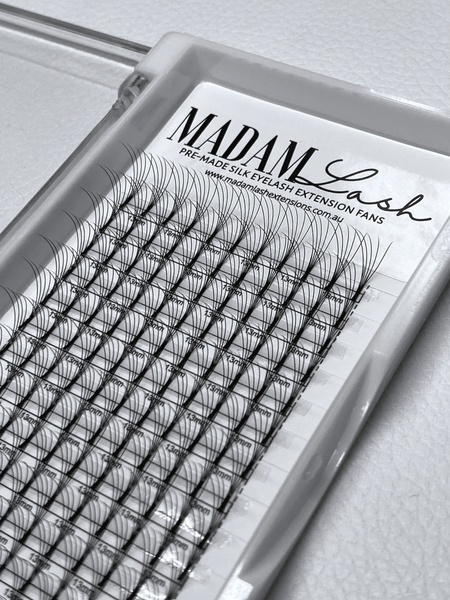 MADAM Lash
PRE-MADE SILK EYELASH EXTENSION FANS
www.madamlashextensions.com.au
13mm